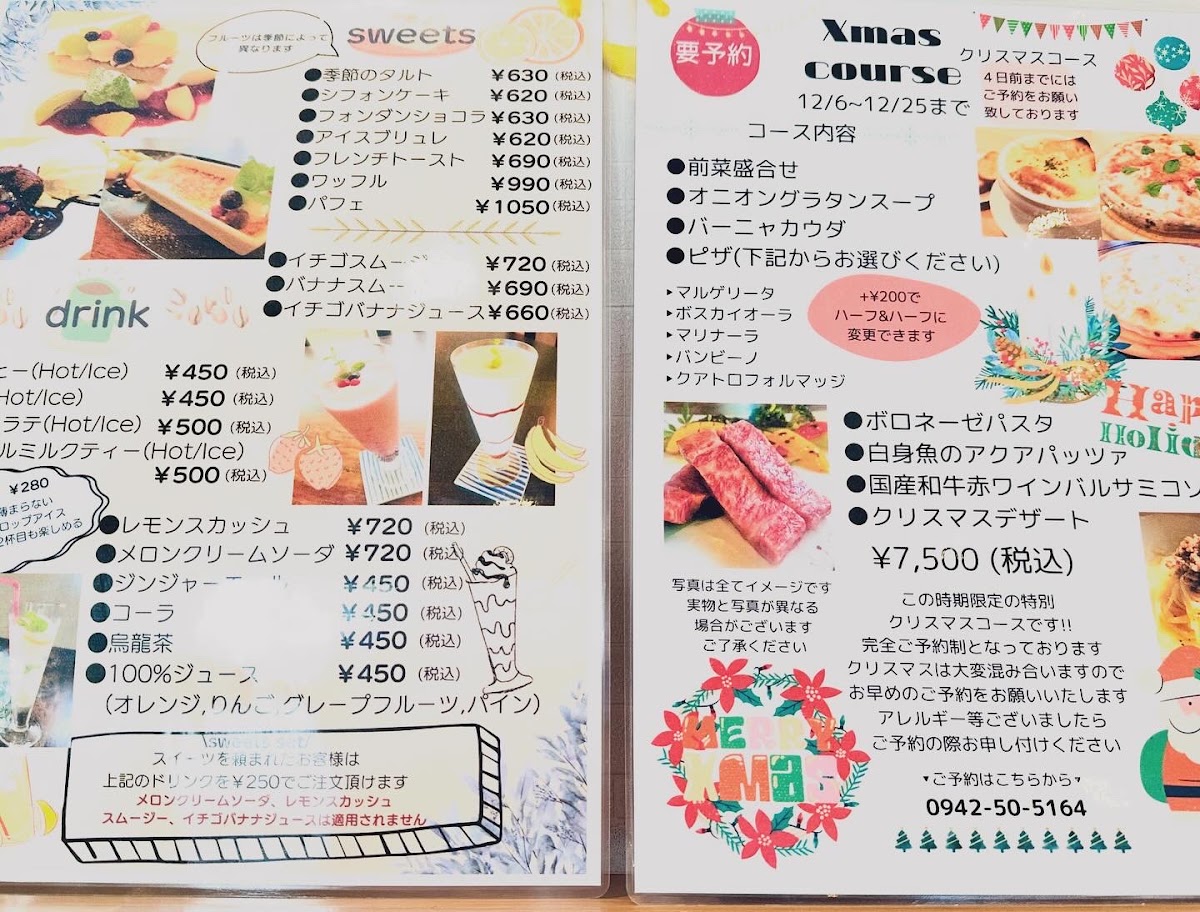 フルーツは季節によって
異なります
sweets
●季節のタルト ¥630 (税込)
●シフォンケーキ ¥620 (税込)
●フォンダンショコラ ¥630 (税込)
●アイスブリュレ ¥620 (税込)
●フレンチトースト ¥690 (税込)
●ワッフル ¥990 (税込)
●パフェ ¥1050 (税込)
●イチゴスムー ¥720 (税込)
●バナナスム ¥690 (税込)
●イチゴバナナジュース ¥660 (税込)
drink
ヒー(Hot/Ice) ¥450 (税込)
Hot/Ice) ¥450 (税込)
ラテ(Hot/Ice) ¥500 (税込)
ルミルクティー(Hot/Ice)
¥500 (税込)
¥280
薄まらない
ロップアイス
2杯目も楽しめる
●レモンスカッシュ ¥720 (税込)
●メロンクリームソーダ ¥720 (税込)
●ジンジャーエール ¥450 (税込)
●コーラ ¥450 (税込)
●烏龍茶 ¥450 (税込)
●100%ジュース ¥450 (税込)
(オレンジ,りんご,グレープフルーツ,パイン)
\sweets set/
スイーツを頼まれたお客様は
上記のドリンクを¥250でご注文頂けます
メロンクリームソーダ、レモンスカッシュ
スムージー、イチゴバナナジュースは適用されません
要予約
Xmas
course
クリスマスコース
12/6~12/25まで
4日前までには
ご予約をお願い
致しております
コース内容
●前菜盛合せ
●オニオングラタンスープ
●バーニャカウダ
●ピザ(下記からお選びください)
▸マルゲリータ
▸ボスカイオーラ
▸マリナーラ
▸バンビーノ
▸クアトロフォルマッジ
+¥200で
ハーフ&ハーフに
変更できます
Hap
Holid
●ボロネーゼパスタ
●白身魚のアクアパッツァ
●国産和牛赤ワインバルサミコソ
●クリスマスデザート
¥7,500 (税込)
写真は全てイメージです
実物と写真が異なる
場合がございます
ご了承ください
この時期限定の特別
クリスマスコースです!!
完全ご予約制となっております
クリスマスは大変混み合いますので
お早めのご予約をお願いいたします
アレルギー等ございましたら
ご予約の際お申し付けください
MERRY
XMAS
▾ご予約はこちらから▾
0942-50-5164